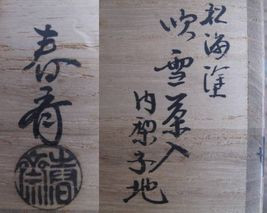 松涛塗
吹雪茶入
内梨子地
春斎
春斎